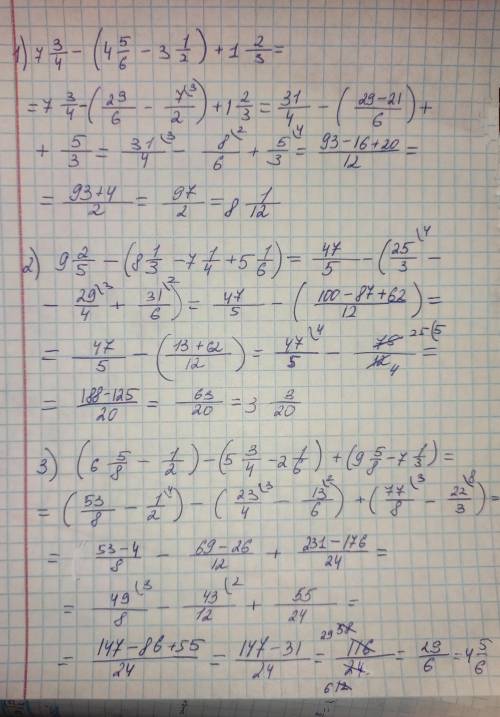 1) 7 3/4 - (4 5/6 - 3 1/2) + 1 2/3 =
= 7 3/4 - (29/6 - 7/2 \3) + 1 2/3 = 31/4 - (29-21/6) +
+ 5/3 = 31/4 \3 - 8/6 \2 + 5/3 \4 = 93-16+20/12 =
= 93+4/2 = 97/2 = 8 1/12
2) 9 2/5 - (8 1/3 - 7 1/4 + 5 1/6) = 47/5 - (25/3 \4 -
- 29/4 \3 + 31/6 \2) = 47/5 - (100-87+62/12) =
= 47/5 - (13+62/12) = 47/5 \4 - 75/12 25/4 \5 =
= 188-125/20 = 63/20 = 3 3/20
3) (6 5/8 - 1/2) - (5 3/4 - 2 1/6) + (9 5/8 - 7 1/3) =
= (53/8 - 1/2 \4) - (23/4 \3 - 13/6 \2) + (77/8 \3 - 22/3 \8) =
= 53-4/8 - 69-26/12 + 231-176/24 =
= 49/8 \3 - 43/12 \2 + 55/24 =
= 147-86+55/24 = 147-31/24 = 116/24 58/12 29/6 = 29/6 = 4 5/6